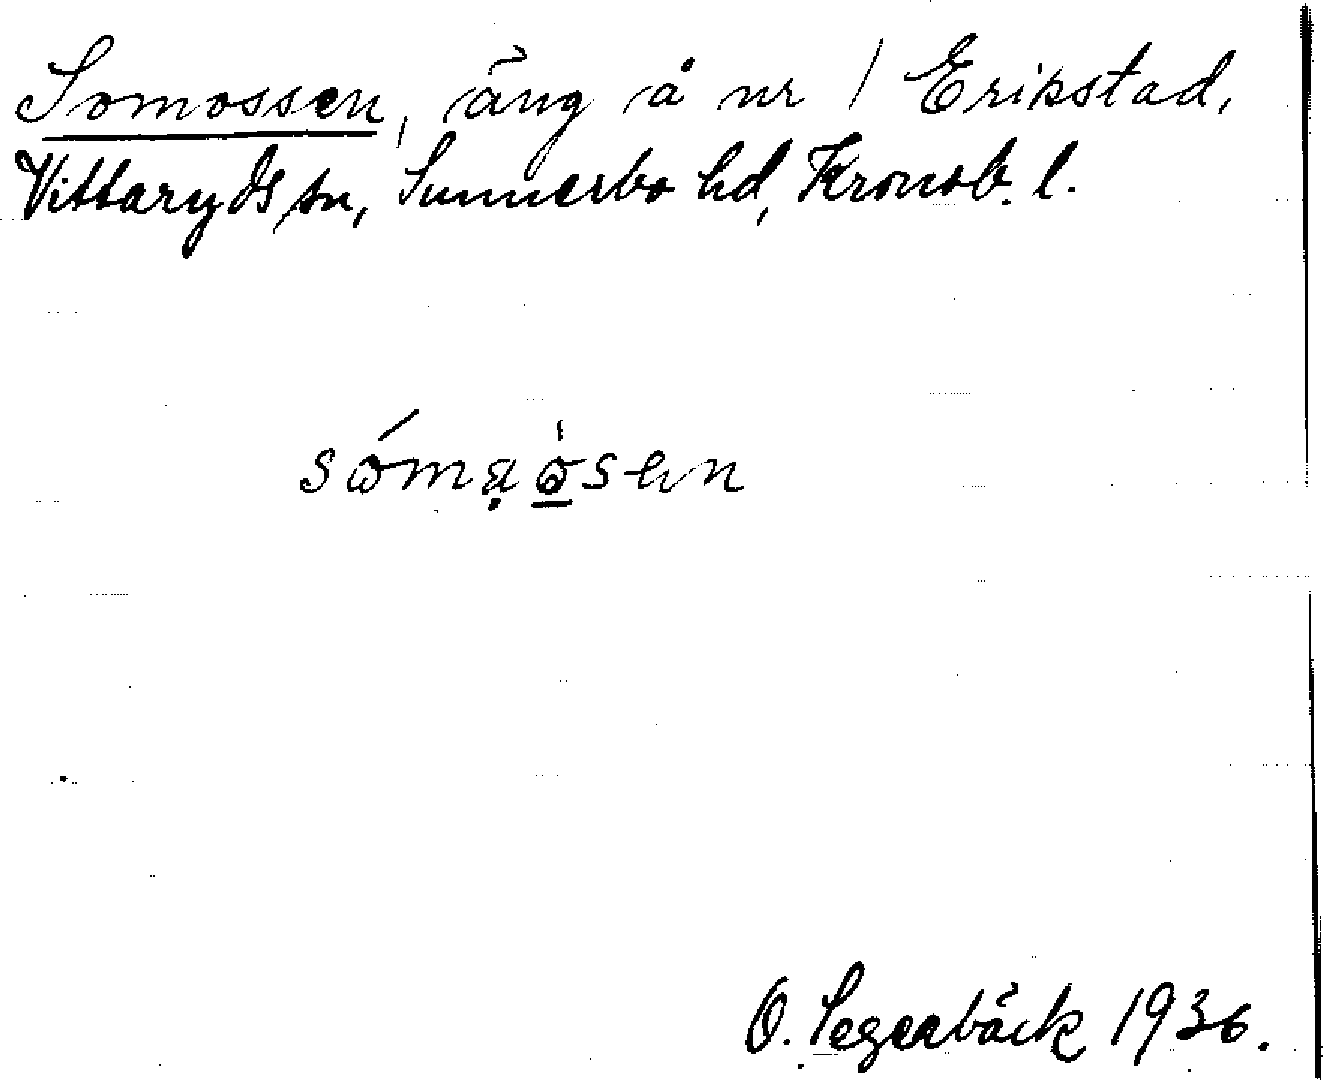 Somossen, äng å nr 1 Erikstad,
Vittaryds sn, Sunnerbo hd, Kronob. l.
O. Segerbäck 1936.